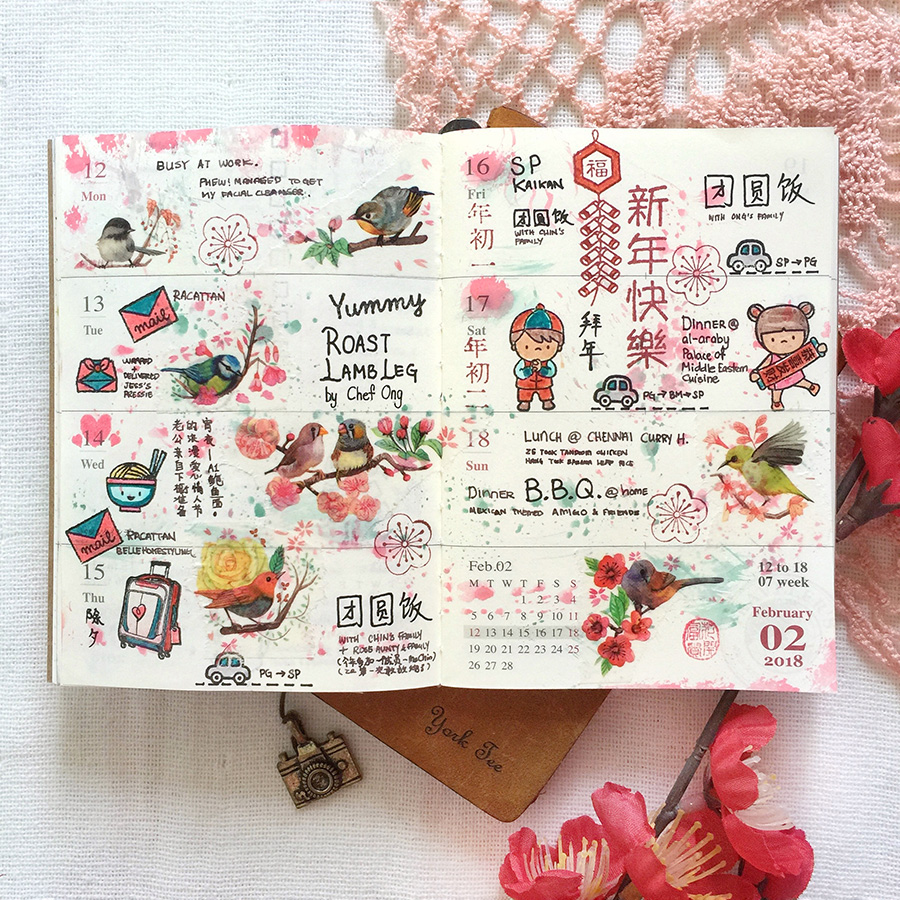 12
Mon
BUSY AT WORK.
PHEW! MANAGED TO GET
MY FACIAL CLEANSER.
13
Tue
mail
RACATTAN
WRAPPED
+
DELIVERED
JESS'S
PRESSIE
Yummy
ROAST
LAMB LEG
by Chef Ong
14
Wed
宵夜—A1鲍鱼面。
的浪漫爱心情人节
老公亲自下橱准备
mail
RACATTAN
BELLEHOMESTYLING
15
Thu
除夕
团圆饭
WITH CHIN'S FAMILY
+ ROSE AUNTY & FAMILY
PG → SP
16
Fri
年初一
SP
KAIKAN
团圆饭
WITH CHIN'S
FAMILY
福
新年快樂
团圆饭
WITH ONG'S FAMILY
SP → PG
17
Sat
年初二
拜年
PG → BM → SP
DINNER @
al-araby
Palace of
Middle Eastern
Cuisine
18
Sun
LUNCH @ CHENNAI CURRY H.
DINNER B.B.Q. @ HOME
MEXICAN THEMED AMIGO & FRIENDS
Feb.02
M T W T F S S
1 2 3 4
5 6 7 8 9 10 11
12 13 14 15 16 17 18
19 20 21 22 23 24 25
26 27 28
12 to 18
07 week
February
02
2018
York Tee